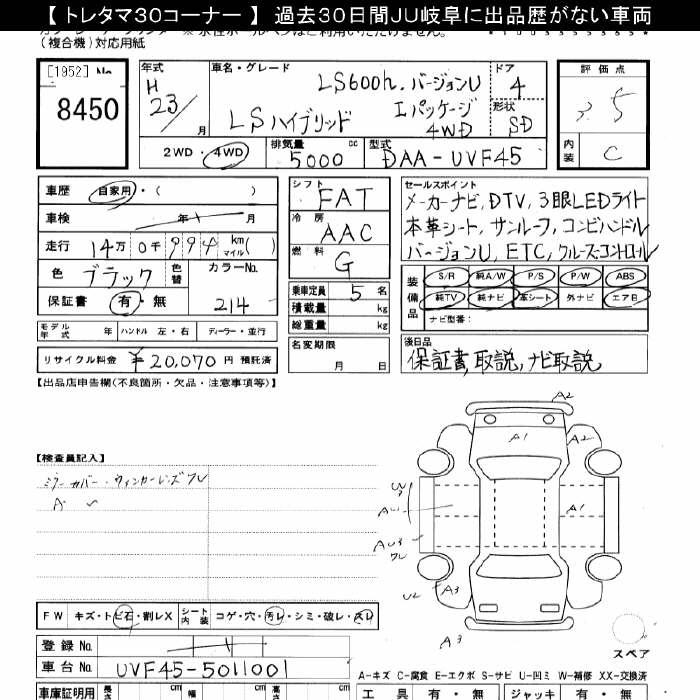 【 トレタマ30コーナー 】 過去30日間JU岐阜に出品歴がない車両
(複合機)対応用紙
[1952] No.
8450
年式
H
23/
月
車名・グレード
LS600h. バージョンU
LSハイブリッド
Iパッケージ
4WD
ドア
4
形状
SD
評価点
3.5
内装
C
2WD・4WD
排気量
5000
cc
型式
DAA-UVF45
車歴
自家用・( )
車検
年 月
走行
14万0千994 km
マイル( )
色
ブラック
色替
カラーNo.
214
保証書
有・無
モデル年式
年
ハンドル 左・右
ディーラー・並行
リサイクル料金 ¥20,070 円 預託済
シフト
FAT
冷房
AAC
燃料
G
乗車定員 5 名
積載量 kg
総重量 kg
名変期限
月 日
セールスポイント
メーカーナビ, DTV, 3眼LEDライト
本革シート, サンルーフ, コンビハンドル
バージョンU, ETC, クルーズコントロール
装備品
S/R 純A/W P/S P/W ABS
純TV 純ナビ 革シート 外ナビ エアB
ナビ型番:
後日品
保証書, 取説, ナビ取説
【出品店申告欄(不良箇所・欠品・注意事項等)】
【検査員記入】
ミラーカバー・ウィンカーレンズ
A
A2
A1
A2
A1
A3
A3
FW キズ・トビ石・割レX
シート内装 コゲ・穴・汚レ・シミ・破レ・スレ
登録 No.
車台 No. UVF45-5011001
スペア
A-キズ C-腐食 E-エクボ S-サビ U-凹ミ W-補修 XX-交換済
車庫証明用
長さ
cm
幅
cm
高さ
cm
工具 有・無
ジャッキ 有・無